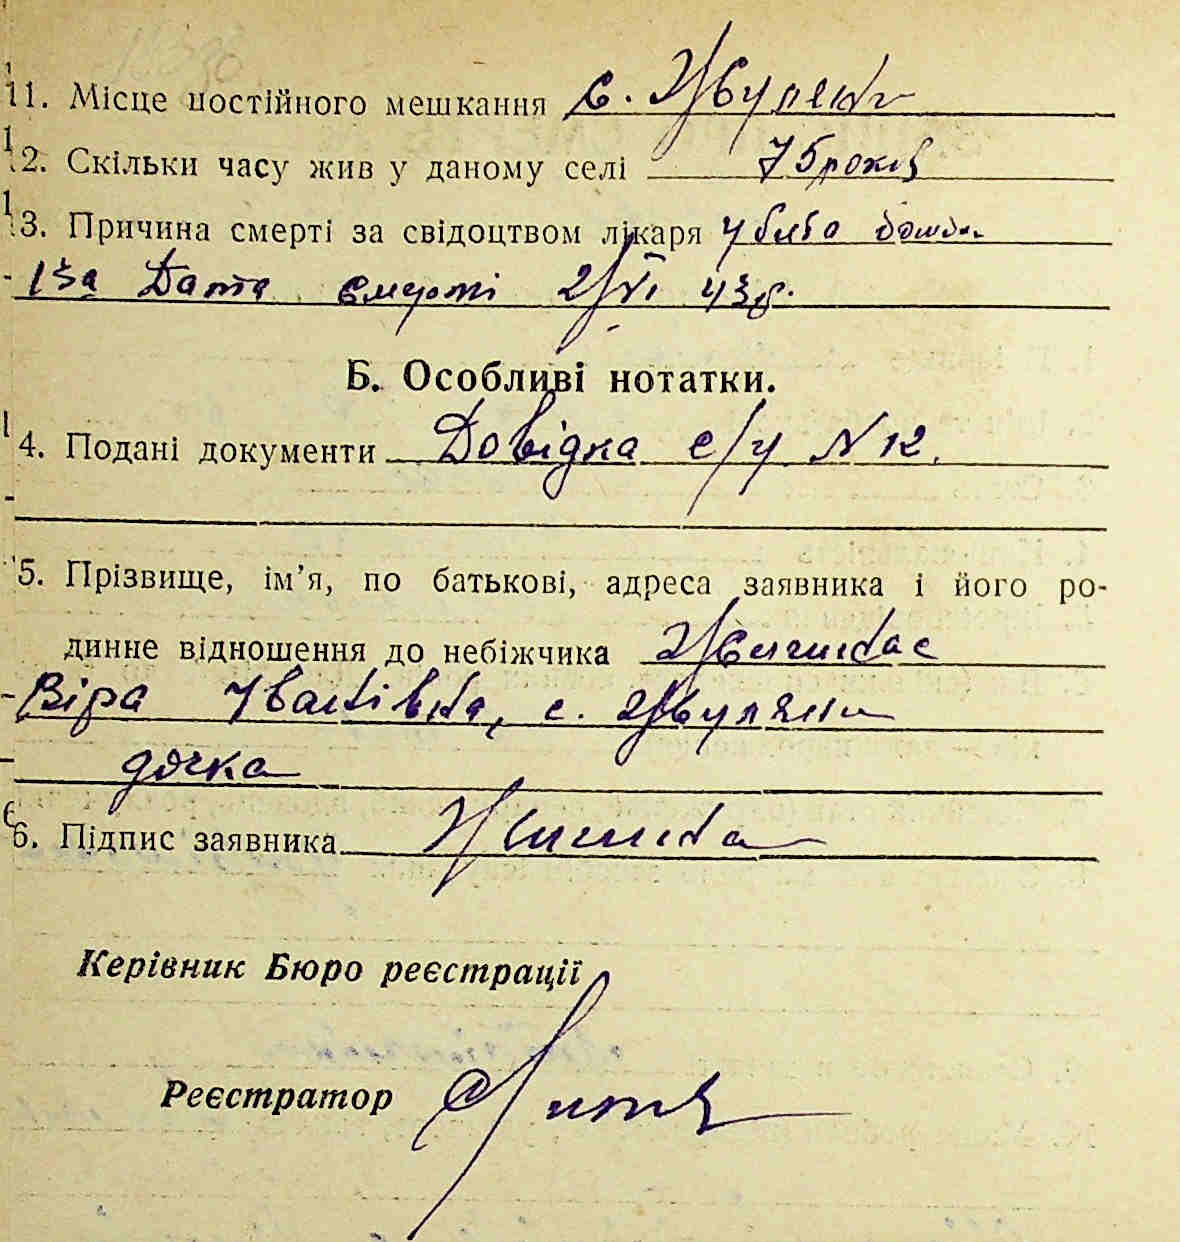 11. Місце постійного мешкання с. Жуляни
12. Скільки часу жив у даному селі 75 років
13. Причина смерті за свідоцтвом лікаря убито
13а Дата смерті 2/VI 43 р.
Б. Особливі нотатки.
14. Подані документи Довідка с/у N 12.
15. Прізвище, ім’я, по батькові, адреса заявника і його ро-
динне відношення до небіжчика
Віра Іванівна, с. Жуляни
дочка
16. Підпис заявника
Керівник Бюро реєстрації
Реєстратор